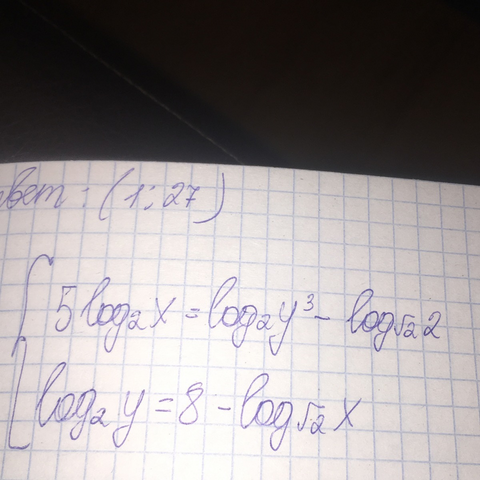 ответ: (1; 27)
5 log₂ x = log₂ y³ - log_√2 2
log₂ y = 8 - log_√2 x